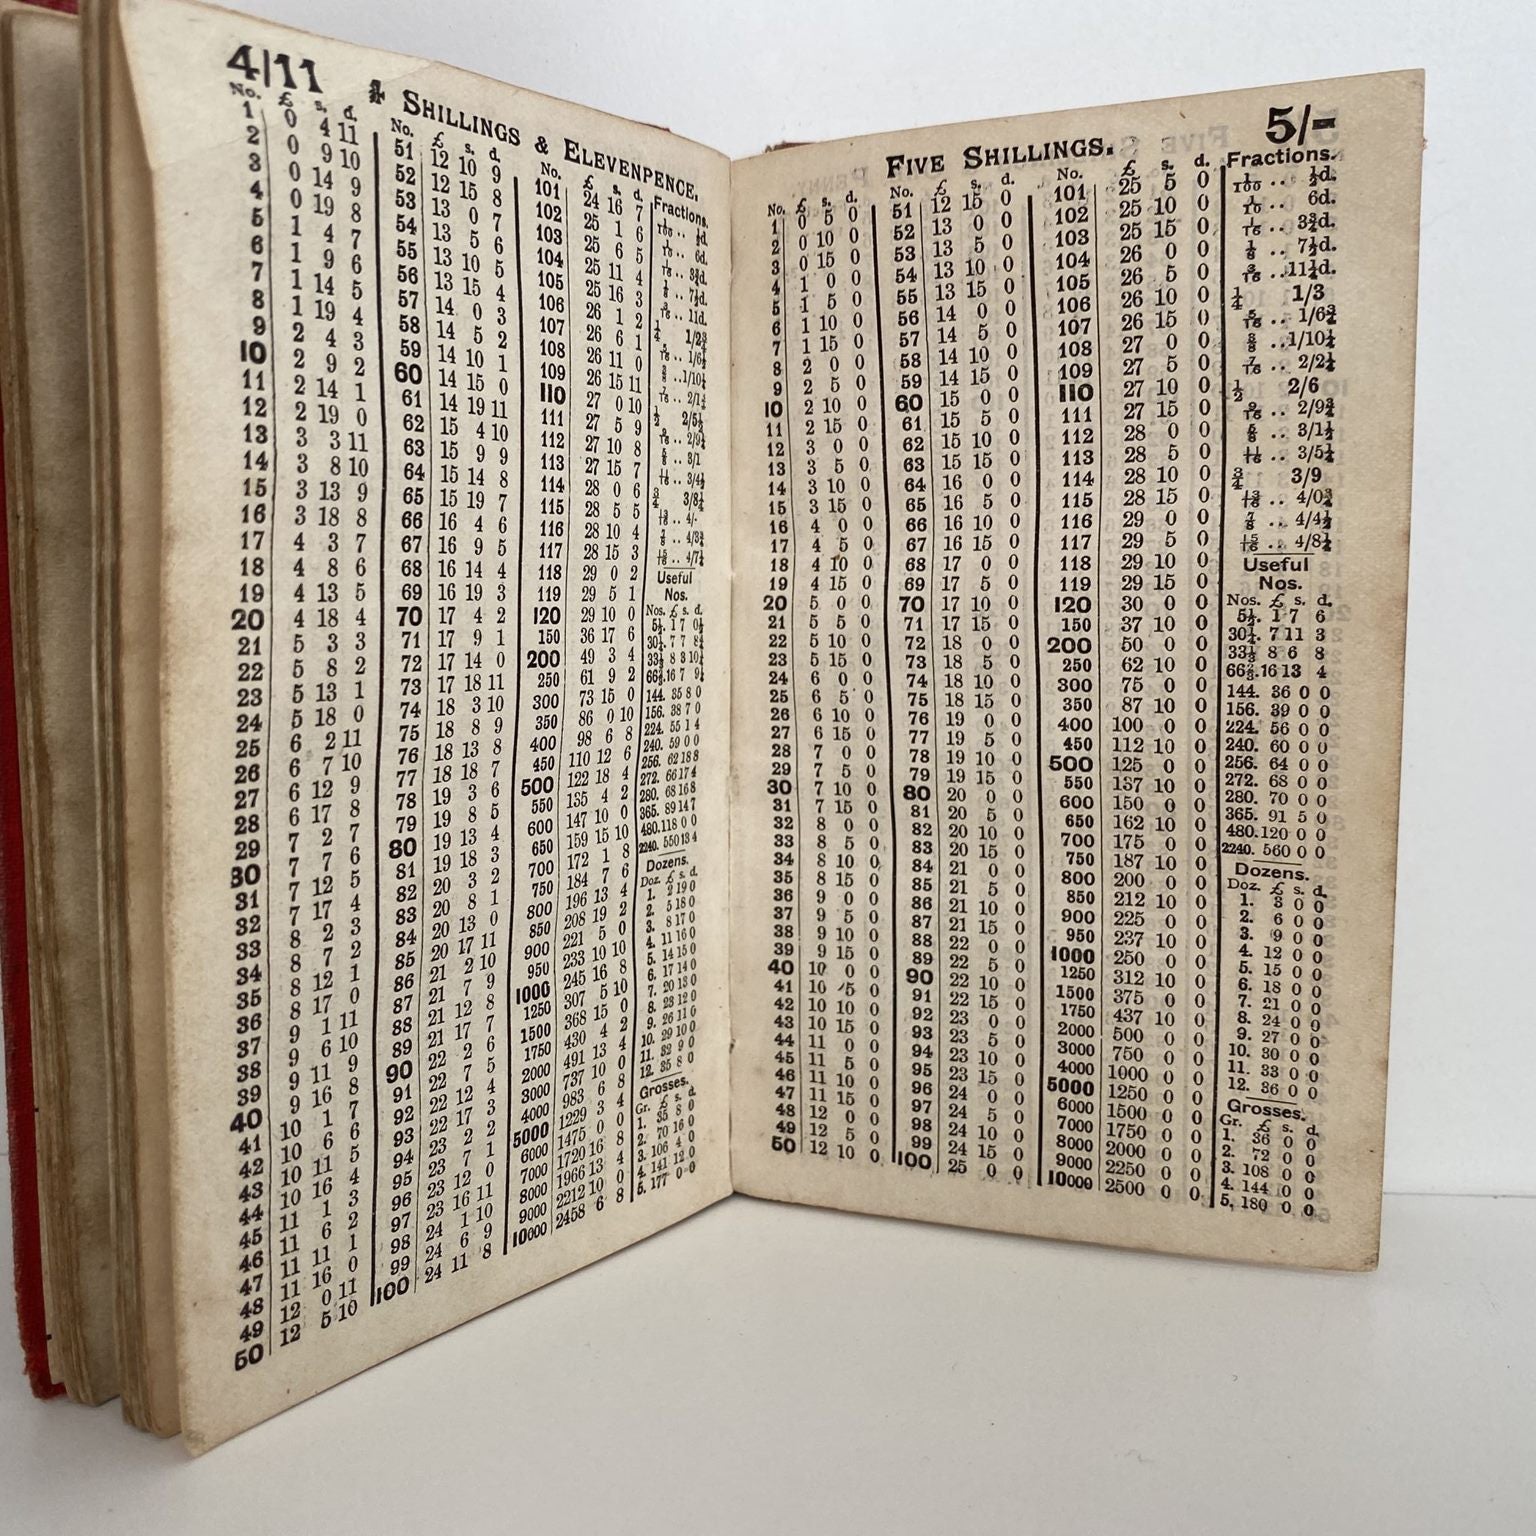 4/11
4 SHILLINGS & ELEVENPENCE.
No. £ s. d.
1 0 4 11
2 0 9 10
3 0 14 9
4 0 19 8
5 1 4 7
6 1 9 6
7 1 14 5
8 1 19 4
9 2 4 3
10 2 9 2
11 2 14 1
12 2 19 0
13 3 3 11
14 3 8 10
15 3 13 9
16 3 18 8
17 4 3 7
18 4 8 6
19 4 13 5
20 4 18 4
21 5 3 3
22 5 8 2
23 5 13 1
24 5 18 0
25 6 2 11
26 6 7 10
27 6 12 9
28 6 17 8
29 7 2 7
30 7 7 6
31 7 12 5
32 7 17 4
33 8 2 3
34 8 7 2
35 8 12 1
36 8 17 0
37 9 1 11
38 9 6 10
39 9 11 9
40 9 16 8
41 10 1 7
42 10 6 6
43 10 11 5
44 10 16 4
45 11 1 3
46 11 6 2
47 11 11 1
48 11 16 0
49 12 0 11
50 12 5 10
No. £ s. d.
51 12 10 9
52 12 15 8
53 13 0 7
54 13 5 6
55 13 10 5
56 13 15 4
57 14 0 3
58 14 5 2
59 14 10 1
60 14 15 0
61 14 19 11
62 15 4 10
63 15 9 9
64 15 14 8
65 15 19 7
66 16 4 6
67 16 9 5
68 16 14 4
69 16 19 3
70 17 4 2
71 17 9 1
72 17 14 0
73 17 18 11
74 18 3 10
75 18 8 9
76 18 13 8
77 18 18 7
78 19 3 6
79 19 8 5
80 19 13 4
81 19 18 3
82 20 3 2
83 20 8 1
84 20 13 0
85 20 17 11
86 21 2 10
87 21 7 9
88 21 12 8
89 21 17 7
90 22 2 6
91 22 7 5
92 22 12 4
93 22 17 3
94 23 2 2
95 23 7 1
96 23 12 0
97 23 16 11
98 24 1 10
99 24 6 9
100 24 11 8
No. £ s. d.
101 24 16 7
102 25 1 6
103 25 6 5
104 25 11 4
105 25 16 3
106 26 1 2
107 26 6 1
108 26 11 0
109 26 15 11
110 27 0 10
111 27 5 9
112 27 10 8
113 27 15 7
114 28 0 6
115 28 5 5
116 28 10 4
117 28 15 3
118 29 0 2
119 29 5 1
120 29 10 0
150 36 17 6
200 49 3 4
250 61 9 2
300 73 15 0
350 86 0 10
400 98 6 8
450 110 12 6
500 122 18 4
550 135 4 2
600 147 10 0
650 159 15 10
700 172 1 8
750 184 7 6
800 196 13 4
850 208 19 2
900 221 5 0
950 233 10 10
1000 245 16 8
1250 307 5 10
1500 368 15 0
1750 430 4 2
2000 491 13 4
3000 737 10 0
4000 983 6 8
5000 1229 3 4
6000 1475 0 0
7000 1720 16 8
8000 1966 13 4
9000 2212 10 0
10000 2458 6 8
Fractions.
1/100 .. ½d.
1/10 .. 6d.
1/16 .. 3¾d.
⅛ .. 7½d.
3/16 .. 11d.
¼ 1/2¾
5/16 .. 1/6½
⅜ .. 1/10¼
7/16 .. 2/1¾
½ 2/5½
9/16 .. 2/9¼
⅝ .. 3/1
11/16 .. 3/4½
¾ 3/8¼
13/16 .. 4/-
⅞ .. 4/3¾
15/16 .. 4/7¼
Useful
Nos.
Nos. £ s. d.
5½. 1 7 0½
30¼. 7 7 8¾
33⅓ 8 3 10¾
66⅔. 16 7 9¼
144. 35 8 0
156. 38 7 0
224. 55 1 4
240. 59 0 0
256. 62 18 8
272. 66 17 4
280. 68 16 8
365. 89 14 7
480. 118 0 0
2240. 550 13 4
Dozens.
Doz. £ s. d.
1. 2 19 0
2. 5 18 0
3. 8 17 0
4. 11 16 0
5. 14 15 0
6. 17 14 0
7. 20 13 0
8. 23 12 0
9. 26 11 0
10. 29 10 0
11. 32 9 0
12. 35 8 0
Grosses.
Gr. £ s. d.
1. 35 8 0
2. 70 16 0
3. 106 4 0
4. 141 12 0
5. 177 0 0
FIVE SHILLINGS.
5/-
No. £ s. d.
1 0 5 0
2 0 10 0
3 0 15 0
4 1 0 0
5 1 5 0
6 1 10 0
7 1 15 0
8 2 0 0
9 2 5 0
10 2 10 0
11 2 15 0
12 3 0 0
13 3 5 0
14 3 10 0
15 3 15 0
16 4 0 0
17 4 5 0
18 4 10 0
19 4 15 0
20 5 0 0
21 5 5 0
22 5 10 0
23 5 15 0
24 6 0 0
25 6 5 0
26 6 10 0
27 6 15 0
28 7 0 0
29 7 5 0
30 7 10 0
31 7 15 0
32 8 0 0
33 8 5 0
34 8 10 0
35 8 15 0
36 9 0 0
37 9 5 0
38 9 10 0
39 9 15 0
40 10 0 0
41 10 5 0
42 10 10 0
43 10 15 0
44 11 0 0
45 11 5 0
46 11 10 0
47 11 15 0
48 12 0 0
49 12 5 0
50 12 10 0
No. £ s. d.
51 12 15 0
52 13 0 0
53 13 5 0
54 13 10 0
55 13 15 0
56 14 0 0
57 14 5 0
58 14 10 0
59 14 15 0
60 15 0 0
61 15 5 0
62 15 10 0
63 15 15 0
64 16 0 0
65 16 5 0
66 16 10 0
67 16 15 0
68 17 0 0
69 17 5 0
70 17 10 0
71 17 15 0
72 18 0 0
73 18 5 0
74 18 10 0
75 18 15 0
76 19 0 0
77 19 5 0
78 19 10 0
79 19 15 0
80 20 0 0
81 20 5 0
82 20 10 0
83 20 15 0
84 21 0 0
85 21 5 0
86 21 10 0
87 21 15 0
88 22 0 0
89 22 5 0
90 22 10 0
91 22 15 0
92 23 0 0
93 23 5 0
94 23 10 0
95 23 15 0
96 24 0 0
97 24 5 0
98 24 10 0
99 24 15 0
100 25 0 0
No. £ s. d.
101 25 5 0
102 25 10 0
103 25 15 0
104 26 0 0
105 26 5 0
106 26 10 0
107 26 15 0
108 27 0 0
109 27 5 0
110 27 10 0
111 27 15 0
112 28 0 0
113 28 5 0
114 28 10 0
115 28 15 0
116 29 0 0
117 29 5 0
118 29 10 0
119 29 15 0
120 30 0 0
150 37 10 0
200 50 0 0
250 62 10 0
300 75 0 0
350 87 10 0
400 100 0 0
450 112 10 0
500 125 0 0
550 137 10 0
600 150 0 0
650 162 10 0
700 175 0 0
750 187 10 0
800 200 0 0
850 212 10 0
900 225 0 0
950 237 10 0
1000 250 0 0
1250 312 10 0
1500 375 0 0
1750 437 10 0
2000 500 0 0
3000 750 0 0
4000 1000 0 0
5000 1250 0 0
6000 1500 0 0
7000 1750 0 0
8000 2000 0 0
9000 2250 0 0
10000 2500 0 0
Fractions.
1/100 .. ½d.
1/10 .. 6d.
1/16 .. 3¾d.
⅛ .. 7½d.
3/16 .. 11¼d.
¼ 1/3
5/16 .. 1/6¾
⅜ .. 1/10½
7/16 .. 2/2¼
½ 2/6
9/16 .. 2/9¾
⅝ .. 3/1½
11/16 .. 3/5¼
¾ 3/9
13/16 .. 4/0¾
⅞ .. 4/4½
15/16 .. 4/8¼
Useful
Nos.
Nos. £ s. d.
5½. 1 7 6
30¼. 7 11 3
33⅓ 8 6 8
66⅔. 16 13 4
144. 36 0 0
156. 39 0 0
224. 56 0 0
240. 60 0 0
256. 64 0 0
272. 68 0 0
280. 70 0 0
365. 91 5 0
480. 120 0 0
2240. 560 0 0
Dozens.
Doz. £ s. d.
1. 3 0 0
2. 6 0 0
3. 9 0 0
4. 12 0 0
5. 15 0 0
6. 18 0 0
7. 21 0 0
8. 24 0 0
9. 27 0 0
10. 30 0 0
11. 33 0 0
12. 36 0 0
Grosses.
Gr. £ s. d.
1. 36 0 0
2. 72 0 0
3. 108 0 0
4. 144 0 0
5. 180 0 0